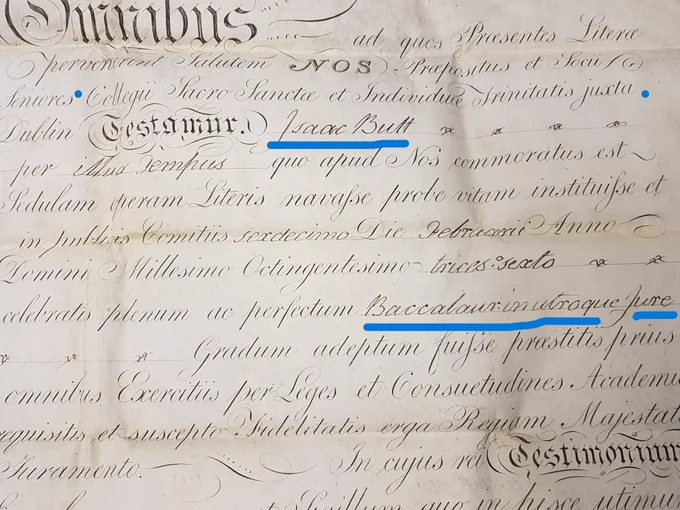 Omnibus ad quos Præsentes Literæ
pervenerint Salutem NOS Præpositus et Socii
Seniores Collegii Sacro Sanctæ et Individuæ Trinitatis juxta
Dublin Testamur. Isaac Butt
per illud Tempus quo apud Nos commoratus est
Sedulam operam Literis navasse probe vitam instituisse et
in publicis Comitiis sexdecimo Die Februarii Anno
Domini Millesimo Octingentesimo trices:o sexto
celebratis plenum ac perfectum Baccalaur: in utroque Jure
Gradum adeptum fuisse præstitis prius
omnibus Exercitiis per Leges et Consuetudines Academi
requisitis et suscepto Fidelitatis erga Regiam Majestat
Juramento. In cujus rei Testimonium
et Sigillum quo in hisce utimur